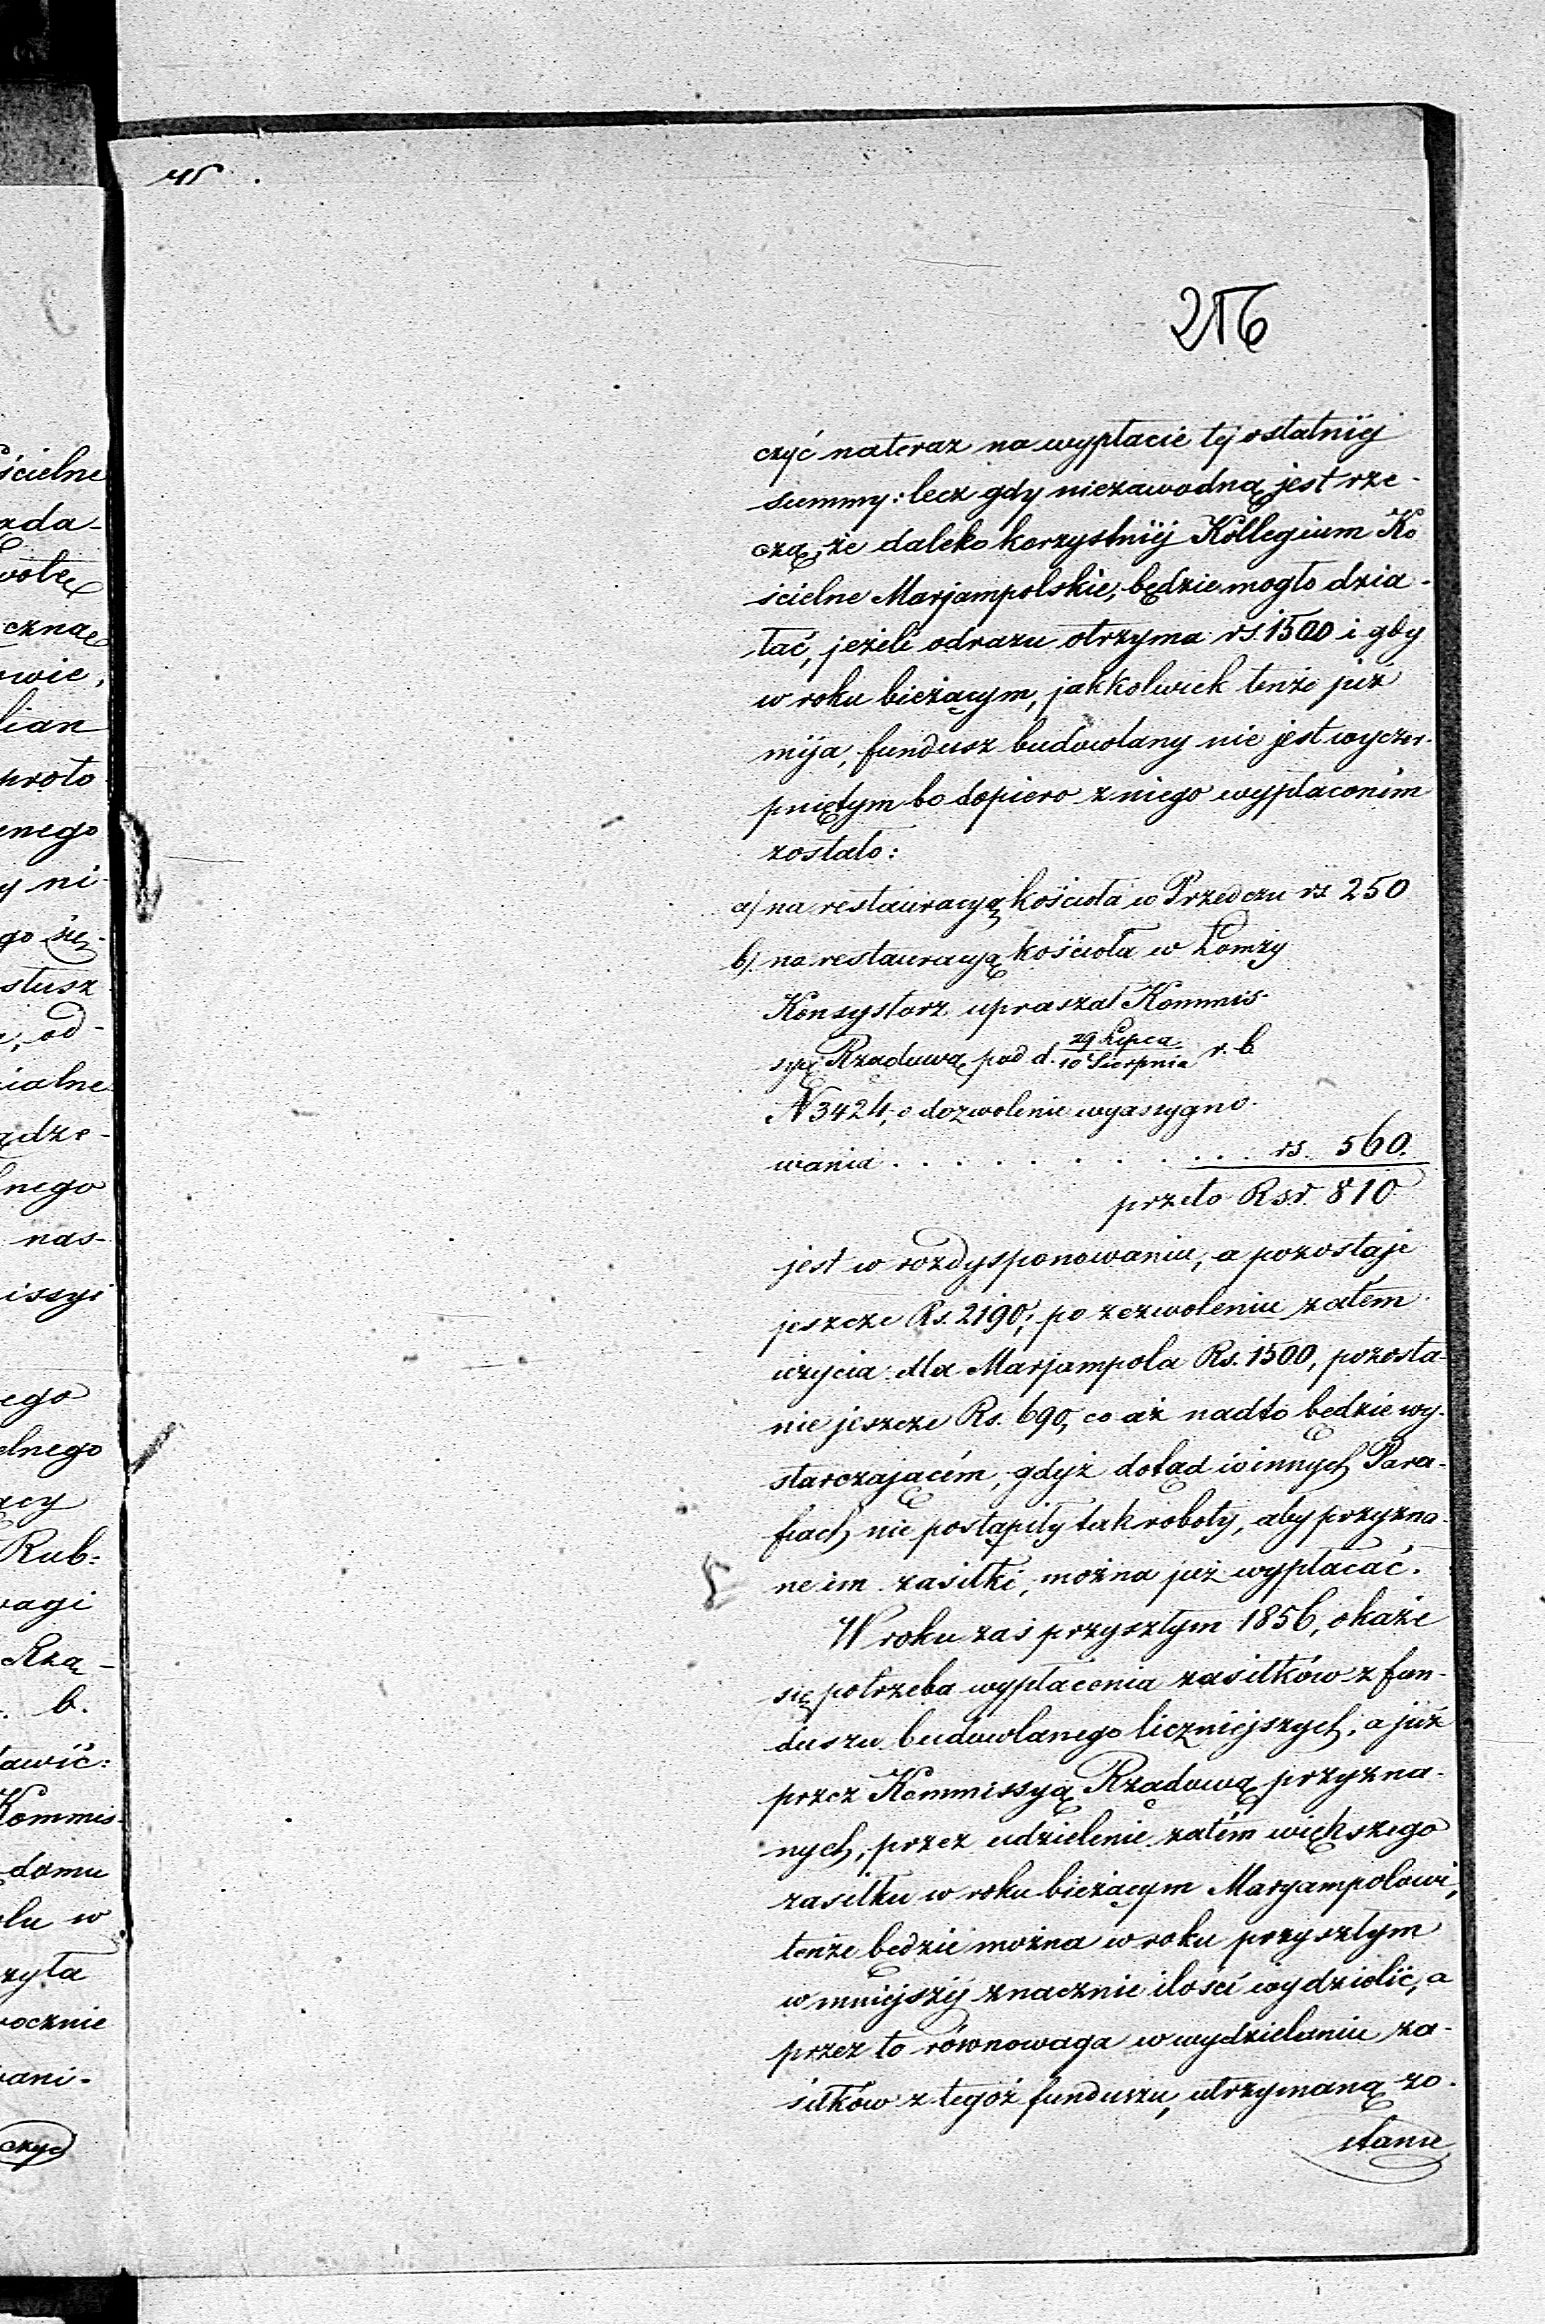 216
czyć nateraz na wypłacie tej ostatniej
summy: lecz gdy niezawodną jest rze-
czą, że daleko korzystniej Kollegium Ko
ścielne Marjampolskie, będzie mogło dzia-
łać, jeżeli odrazu otrzyma rs. 1500 i gdy
w roku bieżącym, jakkolwiek tenże już
mija, fundusz budowlany nie jest wyczer-
pniętym bo dopiero z niego wypłaconém
zostało:
a) na restauracyą kościoła w Przedczu rs 250
b) na restauracyą kościoła w Łomży
Konsystorz upraszał Kommis-
syę Rządową pod d. 29 Lipca / 10 Sierpnia r. b
N 3424, o dozwolenie wyassygno-
wania . . . . . . . . . . . rs. 560.
przeto Rsr. 810
jest w rozdysponowaniu, a pozostaje
jeszcze Rs. 2190; po zezwoleniu zatém
użycia dla Marjampola Rs. 1500, pozosta-
nie jeszcze Rs. 690, co aż nadto będzie wy-
starczającém, gdyż dotąd w innych Para-
fiach nie postąpiły tak roboty, aby przyzna-
ne im zasiłki, można już wypłacać.
W roku zaś przyszłym 1856, okaże
się potrzeba wypłacenia zasiłków z fun-
duszu budowlanego liczniejszych, a już
przez Kommissyą Rządową przyzna-
nych, przez udzielenie zatém większego
zasiłku w roku bieżącym Maryampolowi,
tenże będzie można w roku przyszłym
w mniejszej znacznie ilości wydzielić, a
przez to równowaga w wydzielaniu za-
siłków z tegoż funduszu, utrzymaną zo-
stanie
ścielne
zda-
czną
owie,
lian
proto
enego
y ni-
go się-
słusz
od-
ialne
ądze-
lnego
nas-
issyi
ego
elnego
acy
Rub-
wagi
Rzą-
b.
tawić:
Kommis-
domu
olu w
zyła
rocznie
wani-
czyć